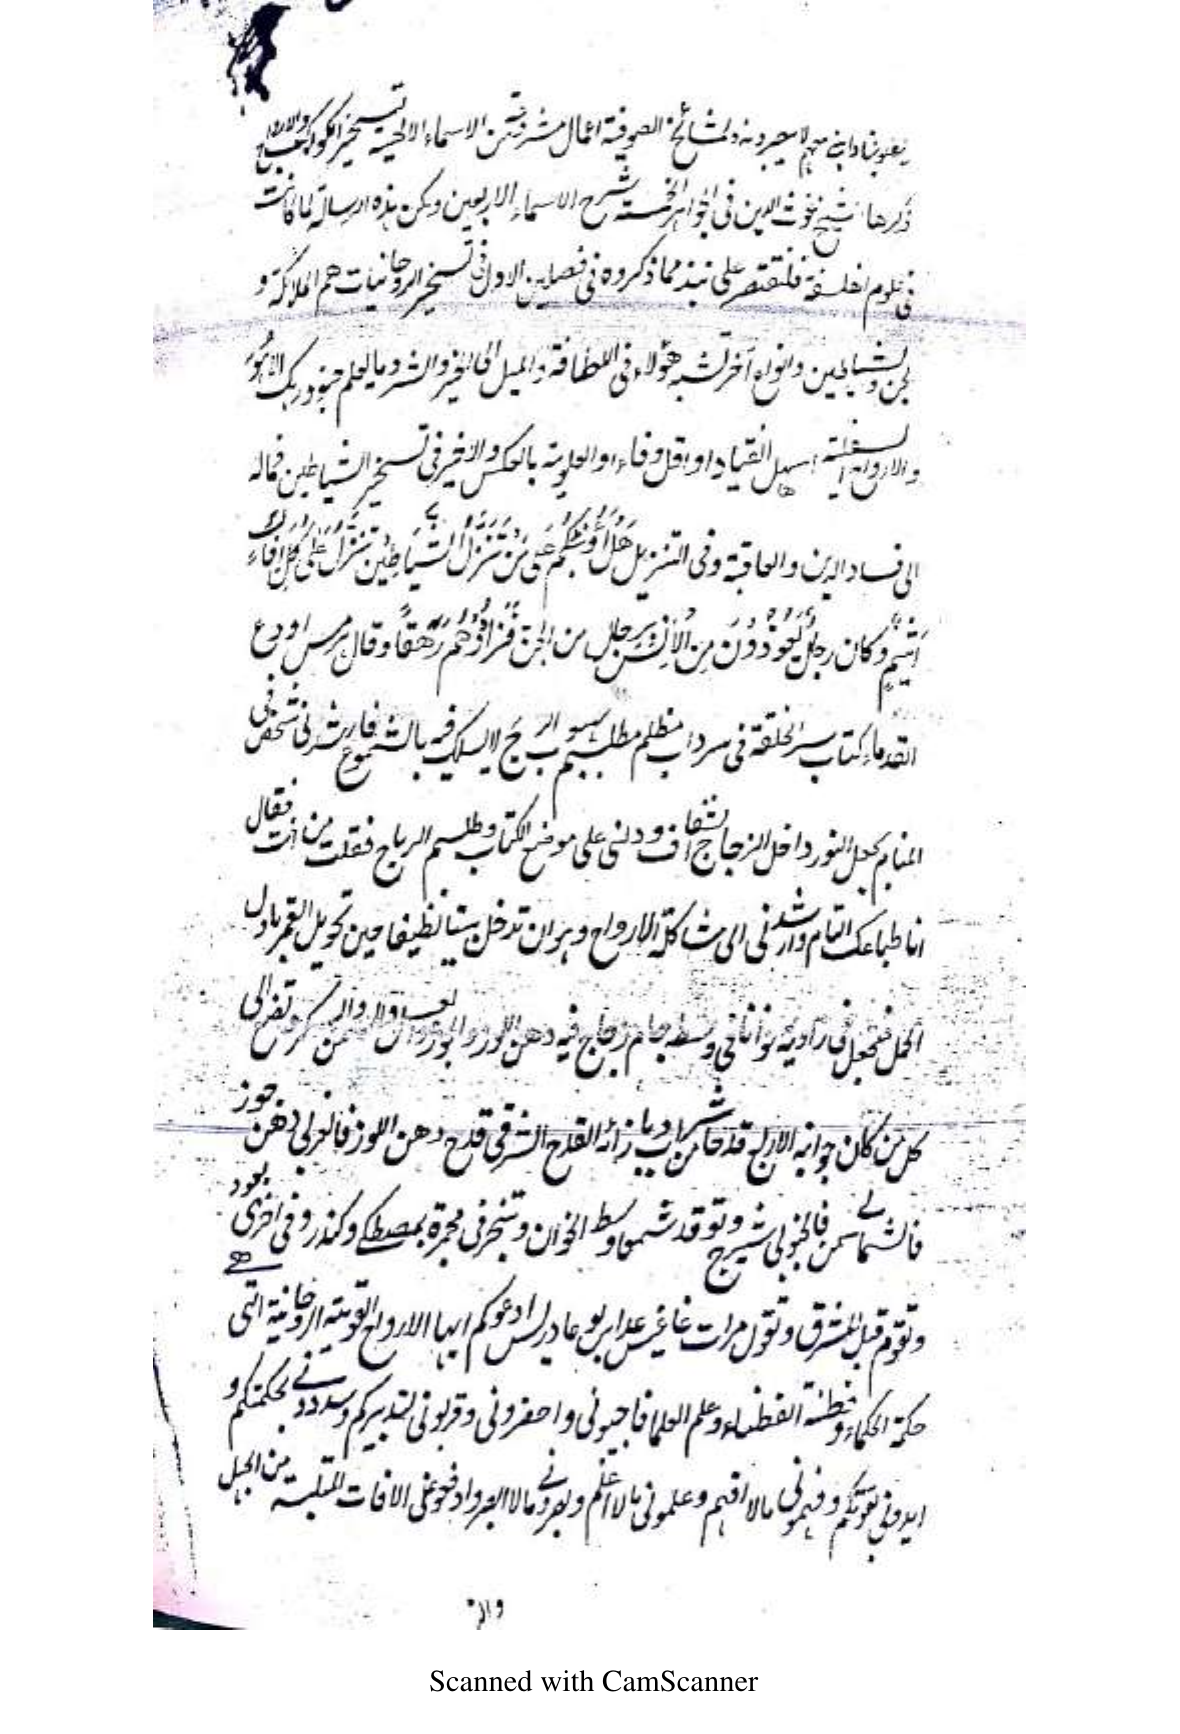 ولمشائخ الصوفية اعمال مشرفة من الاسماء الالهية تسخير الكواكب والارواح
ذكرها شيخ غوث الدين فى الجواهر الخمسة شرح الاسماء الاربعين ولكن هذه الرسالة لما كانت
فى علوم الفلسفة فلنقتصر على نبذ مما ذكروه فى فصلين الاول فى تسخير الروحانيات هم الملائكة و
الجن والشياطين وانواع آخر تشبه هؤلاء فى اللطافة والميل الى الخير والشر وما يعلم جنود ربك الا هو
والارواح السفلية اسهل انقيادا واقل وفاء والعلوية بالعكس والاخير فى تسخير الشياطين فماله
الى فساد الدين والعاقبة وفى التنزيل هَلْ أُنَبِّئُكُمْ عَلَى مَنْ تَنَزَّلُ الشَّيَاطِيْنُ تَنَزَّلُ عَلَى كُلِّ اَفَّاكٍ
اَثِيْمٍ وكان رجال يَعُوْذُوْنَ مِنَ الْاِنْسِ بِرِجالٍ من الجن فَزَادُوْهُمْ رَهَقًا وقال هرمس اودع
القدماء كتاب سر الخلقة فى سرداب مظلم مطلسم لا يسلك فيه بالشموع فارشدنى شخص فى
المنام بجعل النور داخل الزجاج الشفاف ودلنى على موضع الكتاب وطلسم الرياح فقلت من انت فقال
انا طباعك التام وارشدنى الى مشاكلة الارواح وهو ان تدخل بيتا نظيفا حين تحويل القمر باول
الحمل فتجعل فى زاوية خوانا فى وسطه جام زجاج فيه دهن اللوز والجوز والسمن
كل من كان جوانبه الاربع قدحا من شراب وبازائه القدح الشرقى قدح دهن اللوز فالغربى دهن جوز
فالشمالى سمن فالجنوبى شيرج وتوقد شمعا وسط الخوان وتبخر فى مجمرة بمصطكى وكندر وفى اخرى بعود
وتقوم قبل المشرق وتقول مرات ادعوكم ايها الارواح القوية الروحانية التى
حكمة الحكماء وفطنة الفطناء وعلم العلماء فاجيبونى واحضرونى وقربونى لتدبيركم وسددونى بحكمتكم و
ايدونى بقوتكم وفهمونى مالا افهم وعلمونى مالا اعلم وبصرونى مالا ابصر وادفعوا عنى الافات من الجهل